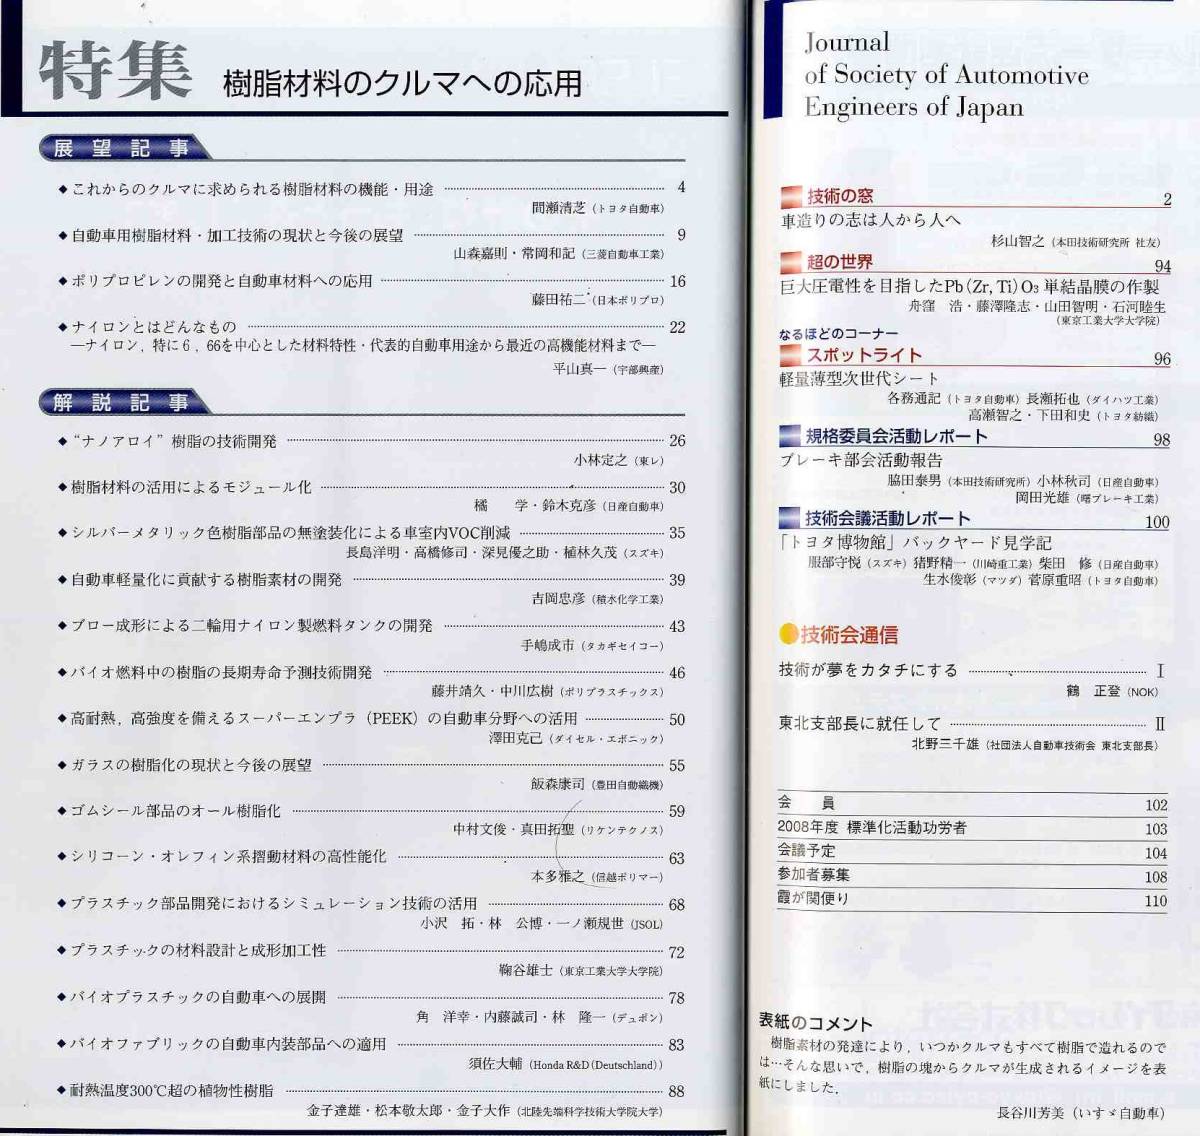 特集 樹脂材料のクルマへの応用
展望記事
◆これからのクルマに求められる樹脂材料の機能・用途 4
間瀬清芝（トヨタ自動車）
◆自動車用樹脂材料・加工技術の現状と今後の展望 9
山森嘉則・常岡和記（三菱自動車工業）
◆ポリプロピレンの開発と自動車材料への応用 16
藤田祐二（日本ポリプロ）
◆ナイロンとはどんなもの 22
―ナイロン，特に6，66を中心とした材料特性・代表的自動車用途から最近の高機能材料まで―
平山真一（宇部興産）
解説記事
◆“ナノアロイ”樹脂の技術開発 26
小林定之（東レ）
◆樹脂材料の活用によるモジュール化 30
橘　学・鈴木克彦（日産自動車）
◆シルバーメタリック色樹脂部品の無塗装化による車室内VOC削減 35
長島洋明・高橋修司・深見優之助・植林久茂（スズキ）
◆自動車軽量化に貢献する樹脂素材の開発 39
吉岡忠彦（積水化学工業）
◆ブロー成形による二輪用ナイロン製燃料タンクの開発 43
手嶋成市（タカギセイコー）
◆バイオ燃料中の樹脂の長期寿命予測技術開発 46
藤井靖久・中川広樹（ポリプラスチックス）
◆高耐熱，高強度を備えるスーパーエンプラ（PEEK）の自動車分野への活用 50
澤田克己（ダイセル・エボニック）
◆ガラスの樹脂化の現状と今後の展望 55
飯森康司（豊田自動織機）
◆ゴムシール部品のオール樹脂化 59
中村文俊・真田拓聖（リケンテクノス）
◆シリコーン・オレフィン系摺動材料の高性能化 63
本多雅之（信越ポリマー）
◆プラスチック部品開発におけるシミュレーション技術の活用 68
小沢　拓・林　公博・一ノ瀬規世（JSOL）
◆プラスチックの材料設計と成形加工性 72
鞠谷雄士（東京工業大学大学院）
◆バイオプラスチックの自動車への展開 78
角　洋幸・内藤誠司・林　隆一（デュポン）
◆バイオファブリックの自動車内装部品への適用 83
須佐大輔（Honda R&D（Deutschland））
◆耐熱温度300℃超の植物性樹脂 88
金子達雄・松本敬太郎・金子大作（北陸先端科学技術大学院大学）
Journal
of Society of Automotive
Engineers of Japan
技術の窓 2
車造りの志は人から人へ
杉山智之（本田技術研究所 社友）
超の世界 94
巨大圧電性を目指したPb（Zr, Ti）O3 単結晶膜の作製
舟窪　浩・藤澤隆志・山田智明・石河睦生
（東京工業大学大学院）
なるほどのコーナー
スポットライト 96
軽量薄型次世代シート
各務通記（トヨタ自動車）長瀬拓也（ダイハツ工業）
高瀬智之・下田和史（トヨタ紡織）
規格委員会活動レポート 98
ブレーキ部会活動報告
脇田泰男（本田技術研究所）小林秋司（日産自動車）
岡田光雄（曙ブレーキ工業）
技術会議活動レポート 100
「トヨタ博物館」バックヤード見学記
服部守悦（スズキ）猪野精一（川崎重工業）柴田　修（日産自動車）
生水俊彰（マツダ）菅原重昭（トヨタ自動車）
技術会通信
技術が夢をカタチにする Ⅰ
鶴　正登（NOK）
東北支部長に就任して Ⅱ
北野三千雄（社団法人自動車技術会 東北支部長）
会　員 102
2008年度 標準化活動功労者 103
会議予定 104
参加者募集 108
霞が関便り 110
表紙のコメント
樹脂素材の発達により，いつかクルマもすべて樹脂で造れるので
は…そんな思いで，樹脂の塊からクルマが生成されるイメージを表
紙にしました．
長谷川芳美（いすゞ自動車）